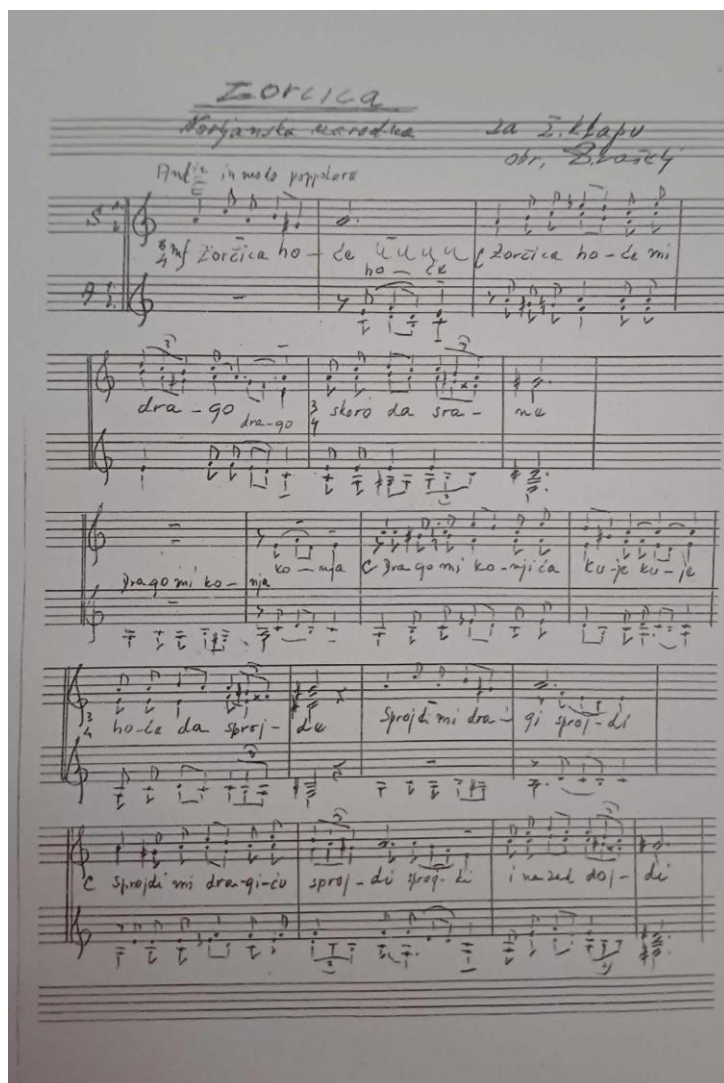 Zorčica
Norijanska narodna za ž. klapu
obr,
in modo poppolare
S
3/4 mf Zorčica ho - će u u u u C Zorčica ho - će mi
ho - će
A
dra - go 3/4 skoro da sva - ne
dra - go
ko - nja C Drago mi ko - njića ku - je ku - je
Drago mi ko - nja
3/4 ho - će da sproj - de Sprojdi mi dra - gi sproj - di
C Sprojdi mi dra - gi - ću sproj - di sproj - di i nazad doj - di